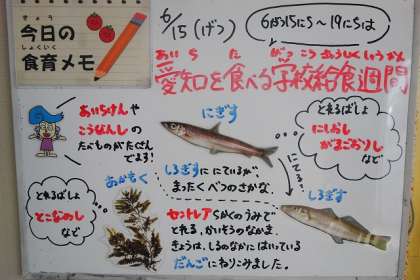 きょう
今日の
しょくいく
食育メモ
6/15(げつ)
6がつ15にち~19にちは
あいち た がっこうきゅうしょくしゅうかん
愛知を食べる学校給食週間
あいちけんや
こうなんしの
たべものがたくさん
でます!
にぎす
とれるばしょ
にしおし
がまごおりし
など
しろぎすににているが
まったくべつのさかな。
にてる…
しろぎす
あかもく
とれるばしょ
とこなめし
など
セントレアちかくのうみで
とれる、かいそうのなかま。
きょうは、しるのなかにはいっている
だんごにねりこみました。